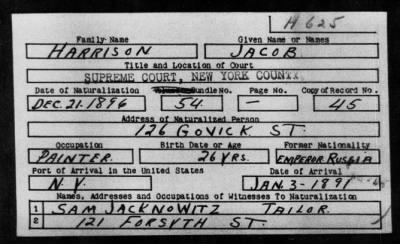 H 625
Family Name Given Name or Names
HARRISON JACOB
Title and Location of Court
SUPREME COURT, NEW YORK COUNTY
Date of Naturalization Bundle No. Page No. Copy of Record No.
DEC. 21. 1896 54. — 45
Address of Naturalized Person
126 GOVICK ST.
Occupation Birth Date or Age Former Nationality
PAINTER. 26 YRS. EMPEROR RUSSIA
Port of Arrival in the United States Date of Arrival
N. Y. JAN. 3-1891
Names, Addresses and Occupations of Witnesses To Naturalization
1 SAM JACKNOWITZ TAILOR.
2 121 FORSYTH ST.